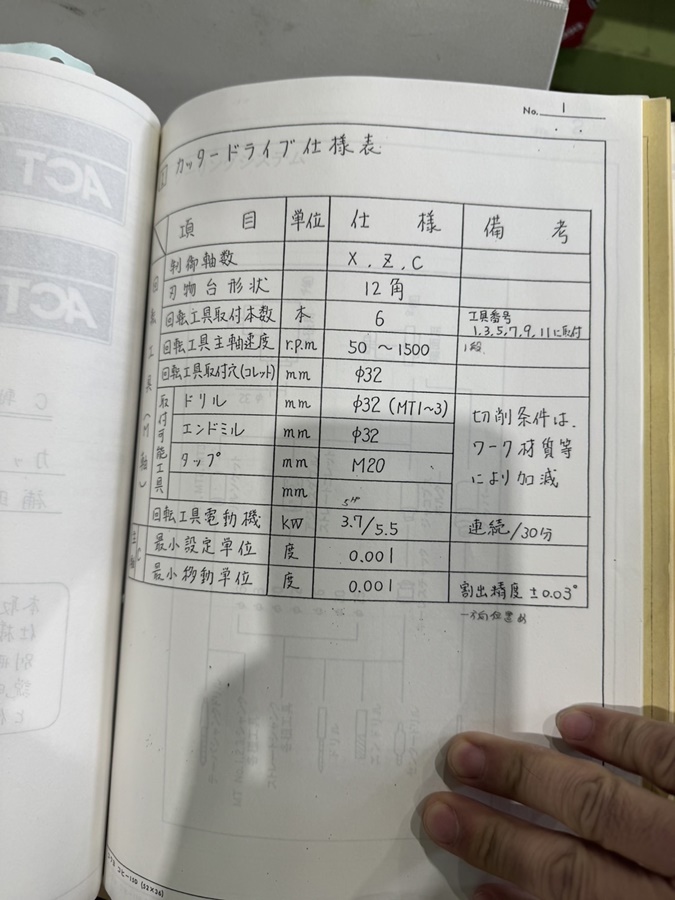 No. 1
カッタードライブ仕様表
項目 単位 仕様 備考
制御軸数 X, Z, C
刃物台形状 12角
回転工具取付本数 本 6 工具番号
1,3,5,7,9,11に取付
回転工具主軸速度 r.p.m 50~1500 1段
回転工具取付穴(コレット) mm φ32
取付可能工具
ドリル mm φ32 (MT1~3)
エンドミル mm φ32
タップ mm M20
mm
切削条件は、
ワーク材質等
により加減
回転工具電動機 kW 3.7/5.5 連続/30分
最小設定単位 度 0.001
最小移動単位 度 0.001 割出精度 ±0.03°
一方向位置め
工具(M軸)
コピー150 (52×36)
ACT
ACT